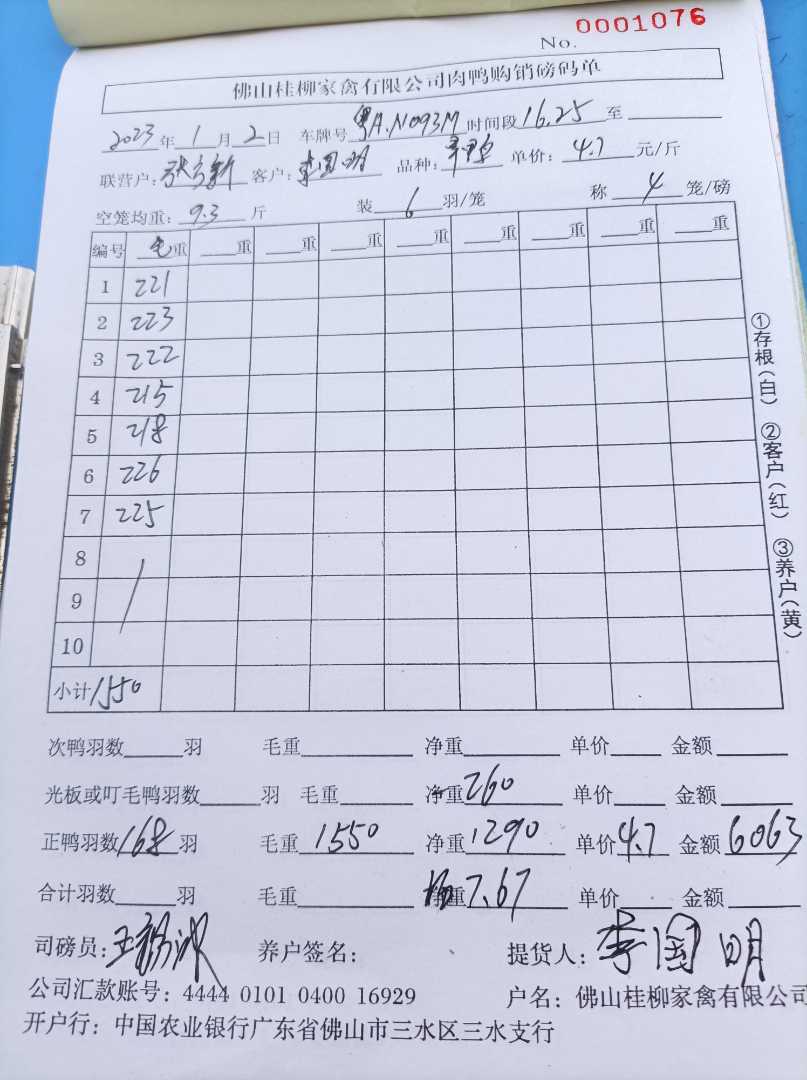 No. 0001076
佛山桂柳家禽有限公司肉鸭购销磅码单
2023年1月2日 车牌号粤A.N093M时间段16.25至
联营户: 客户:李国明 品种: 单价:4.7元/斤
空笼均重:9.3斤 装6羽/笼 称4笼/磅
编号 毛重 重 重 重 重 重 重 重 重
1 221
2 223
3 222
4 215
5 218
6 226
7 225
8
9
10
小计 1550
①存根(白) ②客户(红) ③养户(黄)
次鸭羽数 羽 毛重 净重 单价 金额
光板或叮毛鸭羽数 羽 毛重 净重260 单价 金额
正鸭羽数168羽 毛重1550 净重1290 单价4.7 金额6063
合计羽数 羽 毛重 7.67 单价 金额
司磅员: 养户签名: 提货人:李国明
公司汇款账号: 4444 0101 0400 16929 户名: 佛山桂柳家禽有限公司
开户行: 中国农业银行广东省佛山市三水区三水支行